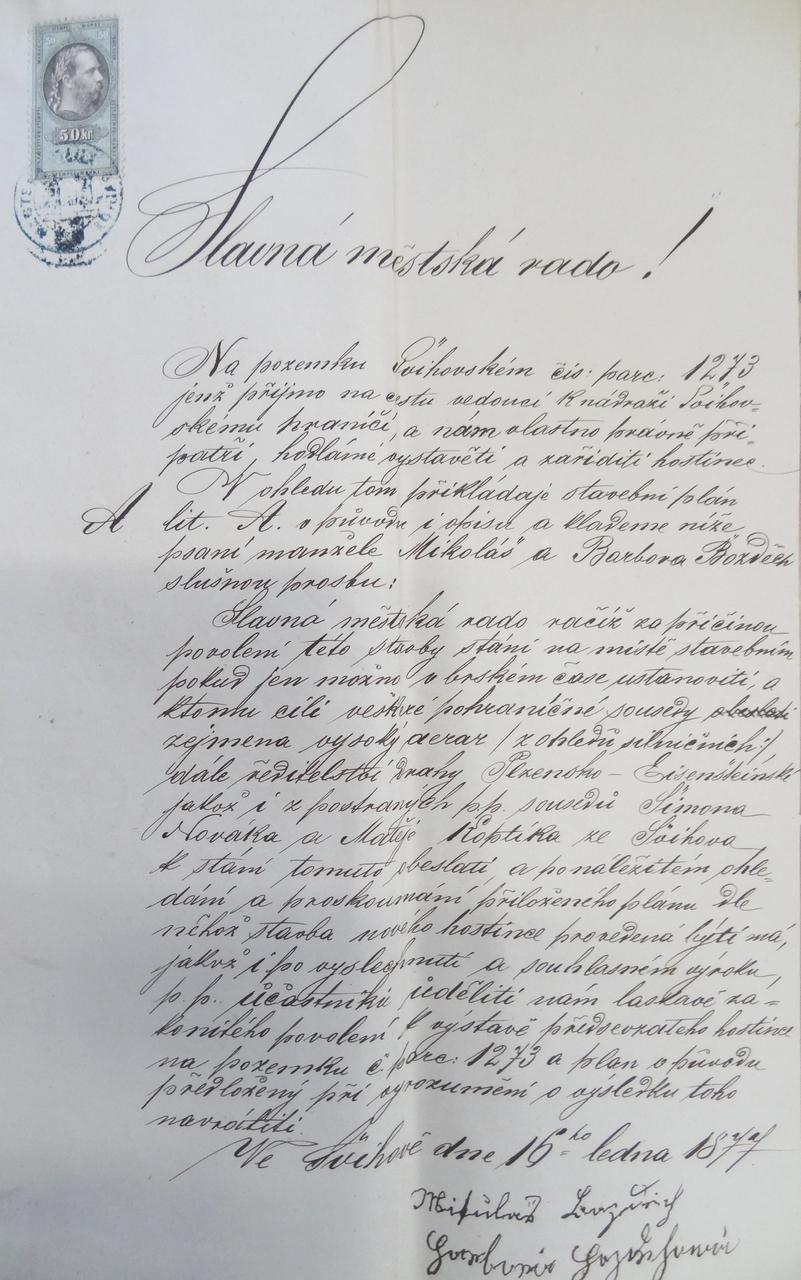 50 kr
Slavná městská rado!
Na pozemku Švihovském čís: parc: 1273
jenž přijmo na cestu vedoucí k nádraží Švihov-
skému hraničí, a nám vlastno právně při-
patří, hodláme vystavěti a zaříditi hostinec.
V ohledu tom přikládaje stavební plán
A lit. A. v původu i opisu a klademe níže
psaní manžele Mikoláš a Barbora Bozděch
slušnou prosbu:
Slavná městská rado račiž za příčinou
povolení této stavby stání na místě stavebním
pokud jen možno v brském čase ustanoviti, a
ktomu cíli veškré pohraničné sousedy
zejmena vysoký aerar /: z ohledů silničních :/
dále ředitelství drahy Plzensko - Eisenšteinské
jakož i z postraných p.p. sousedů Šimona
Nováka a Matěje Koptika ze Švihova
k stání tomuto obeslati, a po náležitém ohle-
dání a proskoumání přiloženého plánu dle
něhož stavba nového hostince provedená býti má,
jakož i po vyslechnutí a souhlasném výroku
p. p. účastníků uděliti nám laskavě zá-
konitého povolení k výstavě předsevzateho hostince
na pozemku č parc: 1273 a plan v původu
předložený při vyrozumění o vysledku toho
navrátiti.
Ve Švihově dne 16ho ledna 1877
Mikuláš Bozděch
Barbora Bozděchová